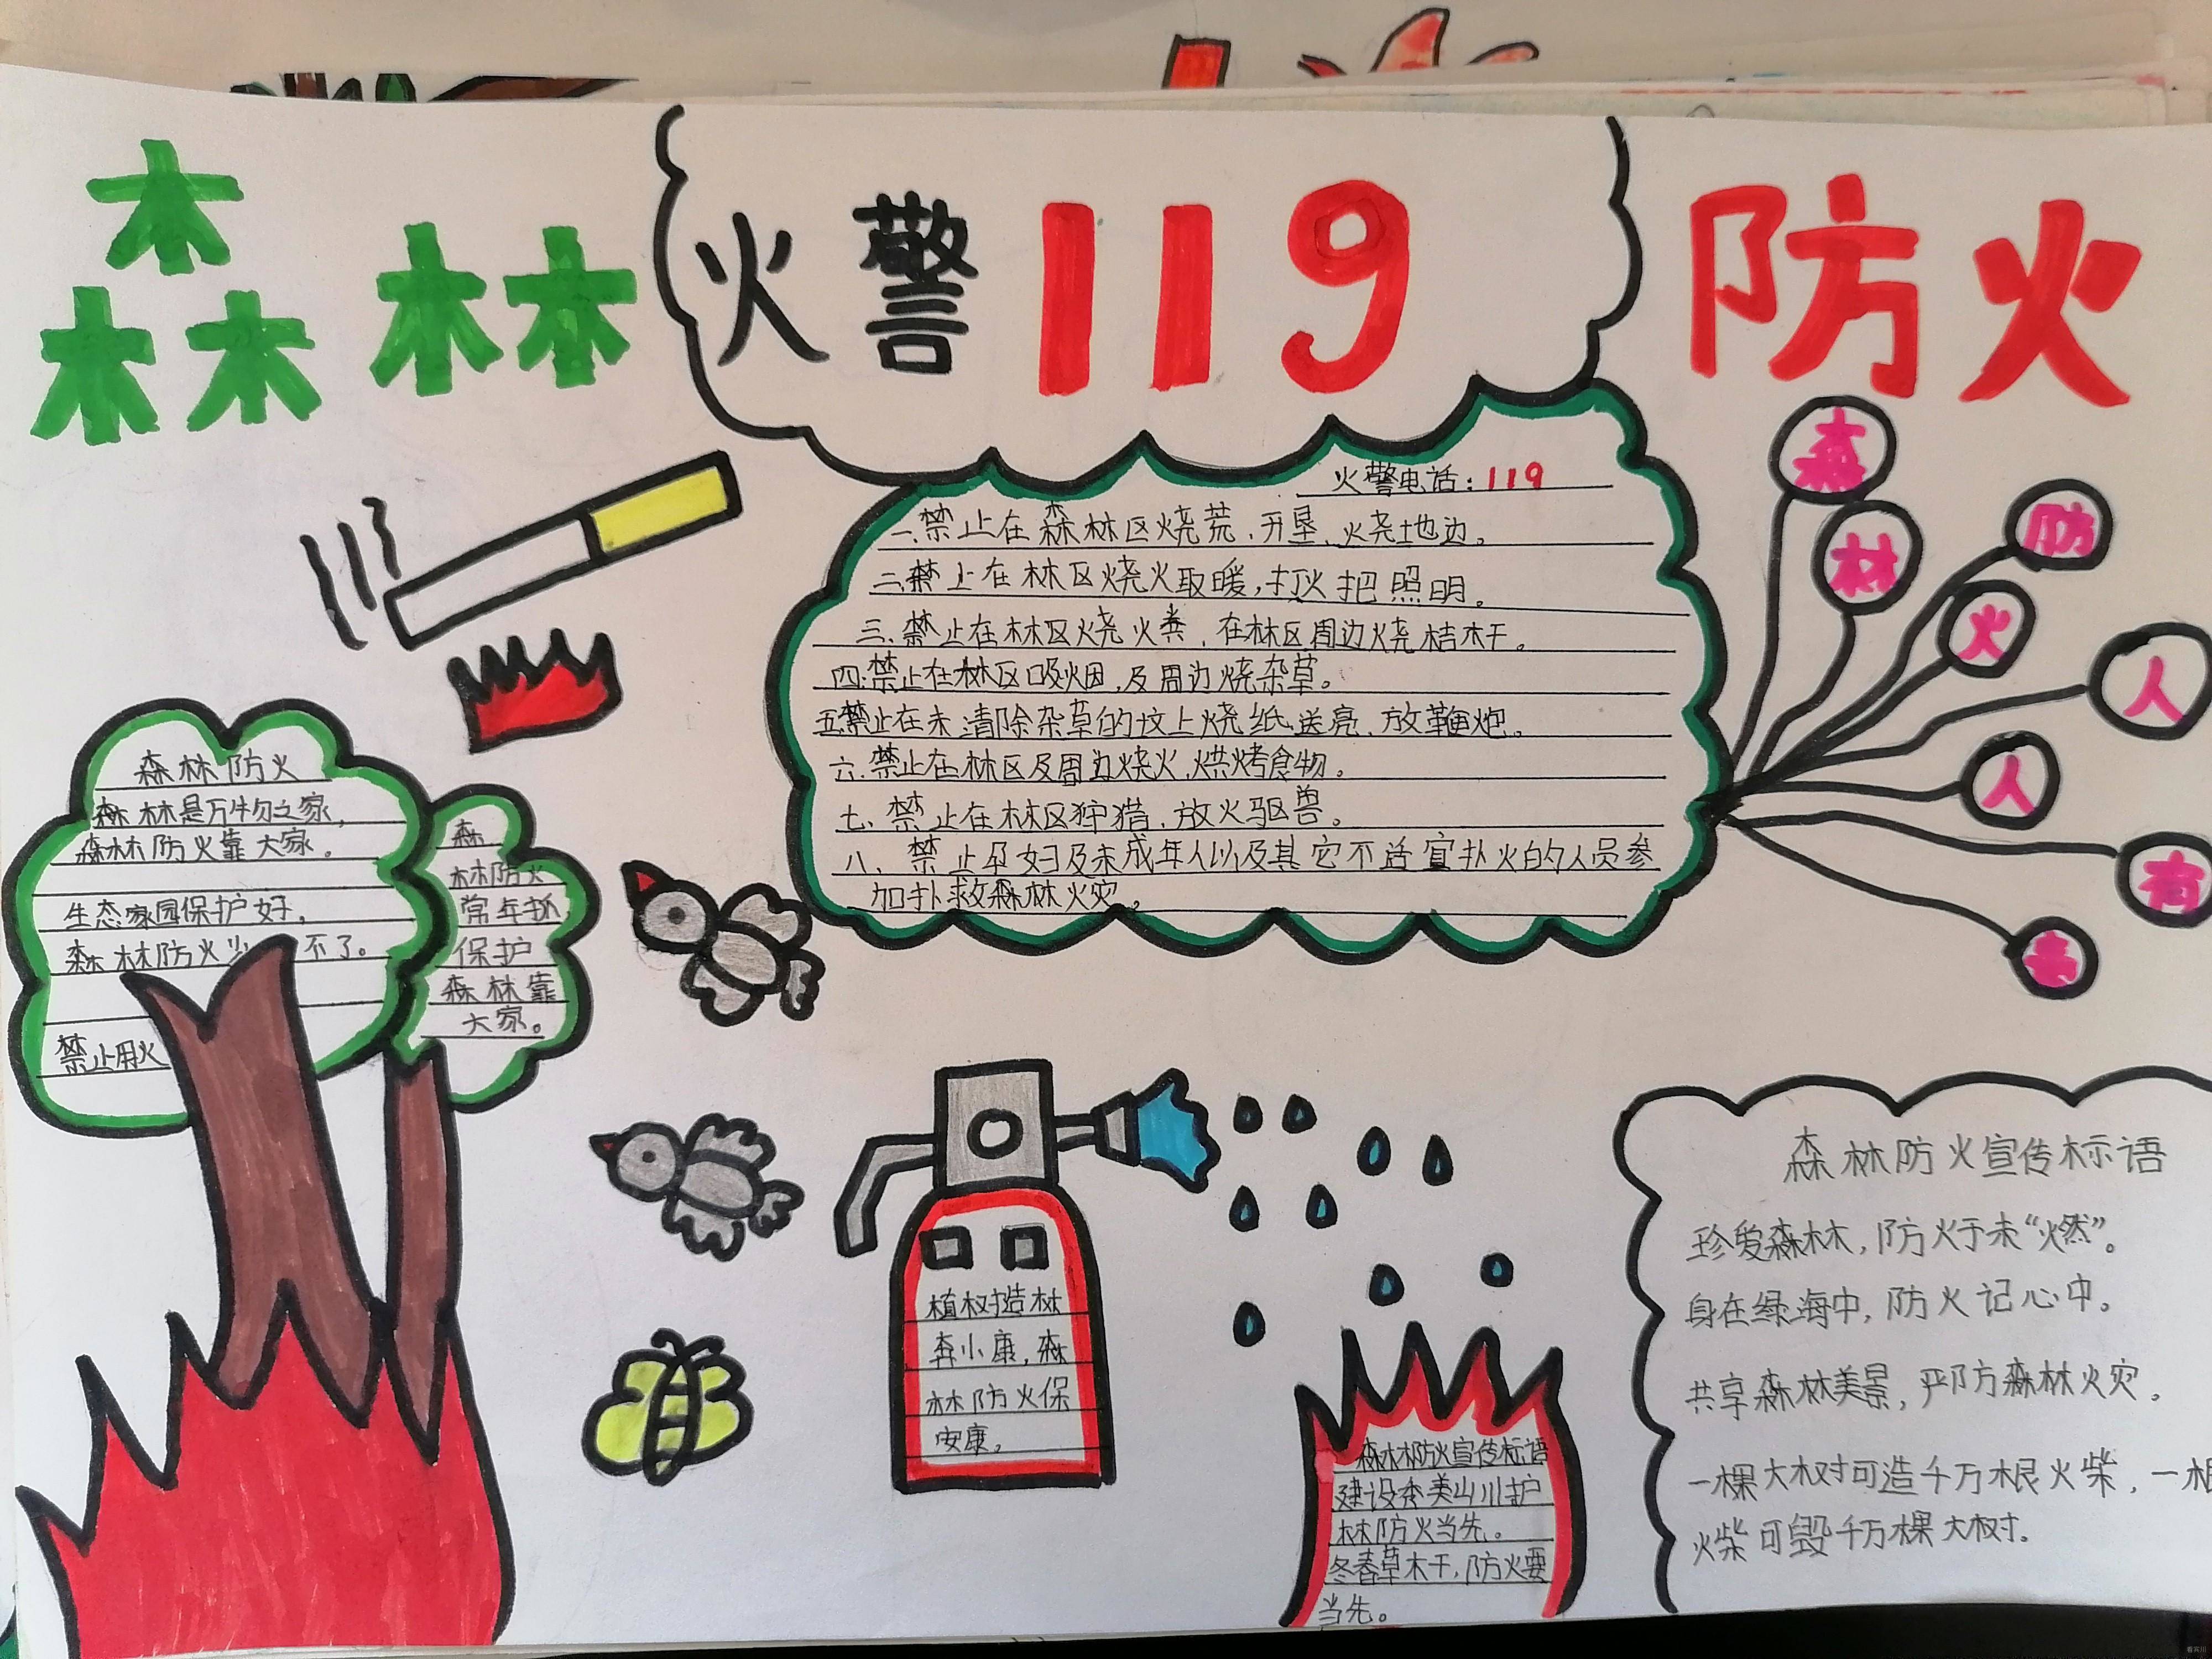 森林
火警119
防火
火警电话：119
一、禁止在森林区烧荒，开垦、火烧地边。
二、禁止在林区烧火取暖，打火把照明。
三、禁止在林区烧火粪，在林区周边烧桔杆。
四、禁止在林区吸烟，及周边烧杂草。
五、禁止在未清除杂草的坟上烧纸、送亮、放鞭炮。
六、禁止在林区及周边烧火，烘烤食物。
七、禁止在林区狩猎，放火驱兽。
八、禁止孕妇及未成年人以及其它不适宜扑火的人员参
加扑救森林火灾。
森
林
防
火
人
人
有
责
森林防火
森林是万物之家，
森林防火靠大家。
生态家园保护好，
森林防火少不了。
禁止用火
森
林防火
常年抓，
保护
森林靠
大家。
植树造林
奔小康，森
林防火保
安康。
森林防火宣传标语
建设秀美山川护
林防火当先。
冬春草木干，防火要
当先。
森林防火宣传标语
珍爱森林，防火于未“燃”。
身在绿海中，防火记心中。
共享森林美景，严防森林火灾。
一棵大树可造千万根火柴，一根
火柴可毁千万棵大树。